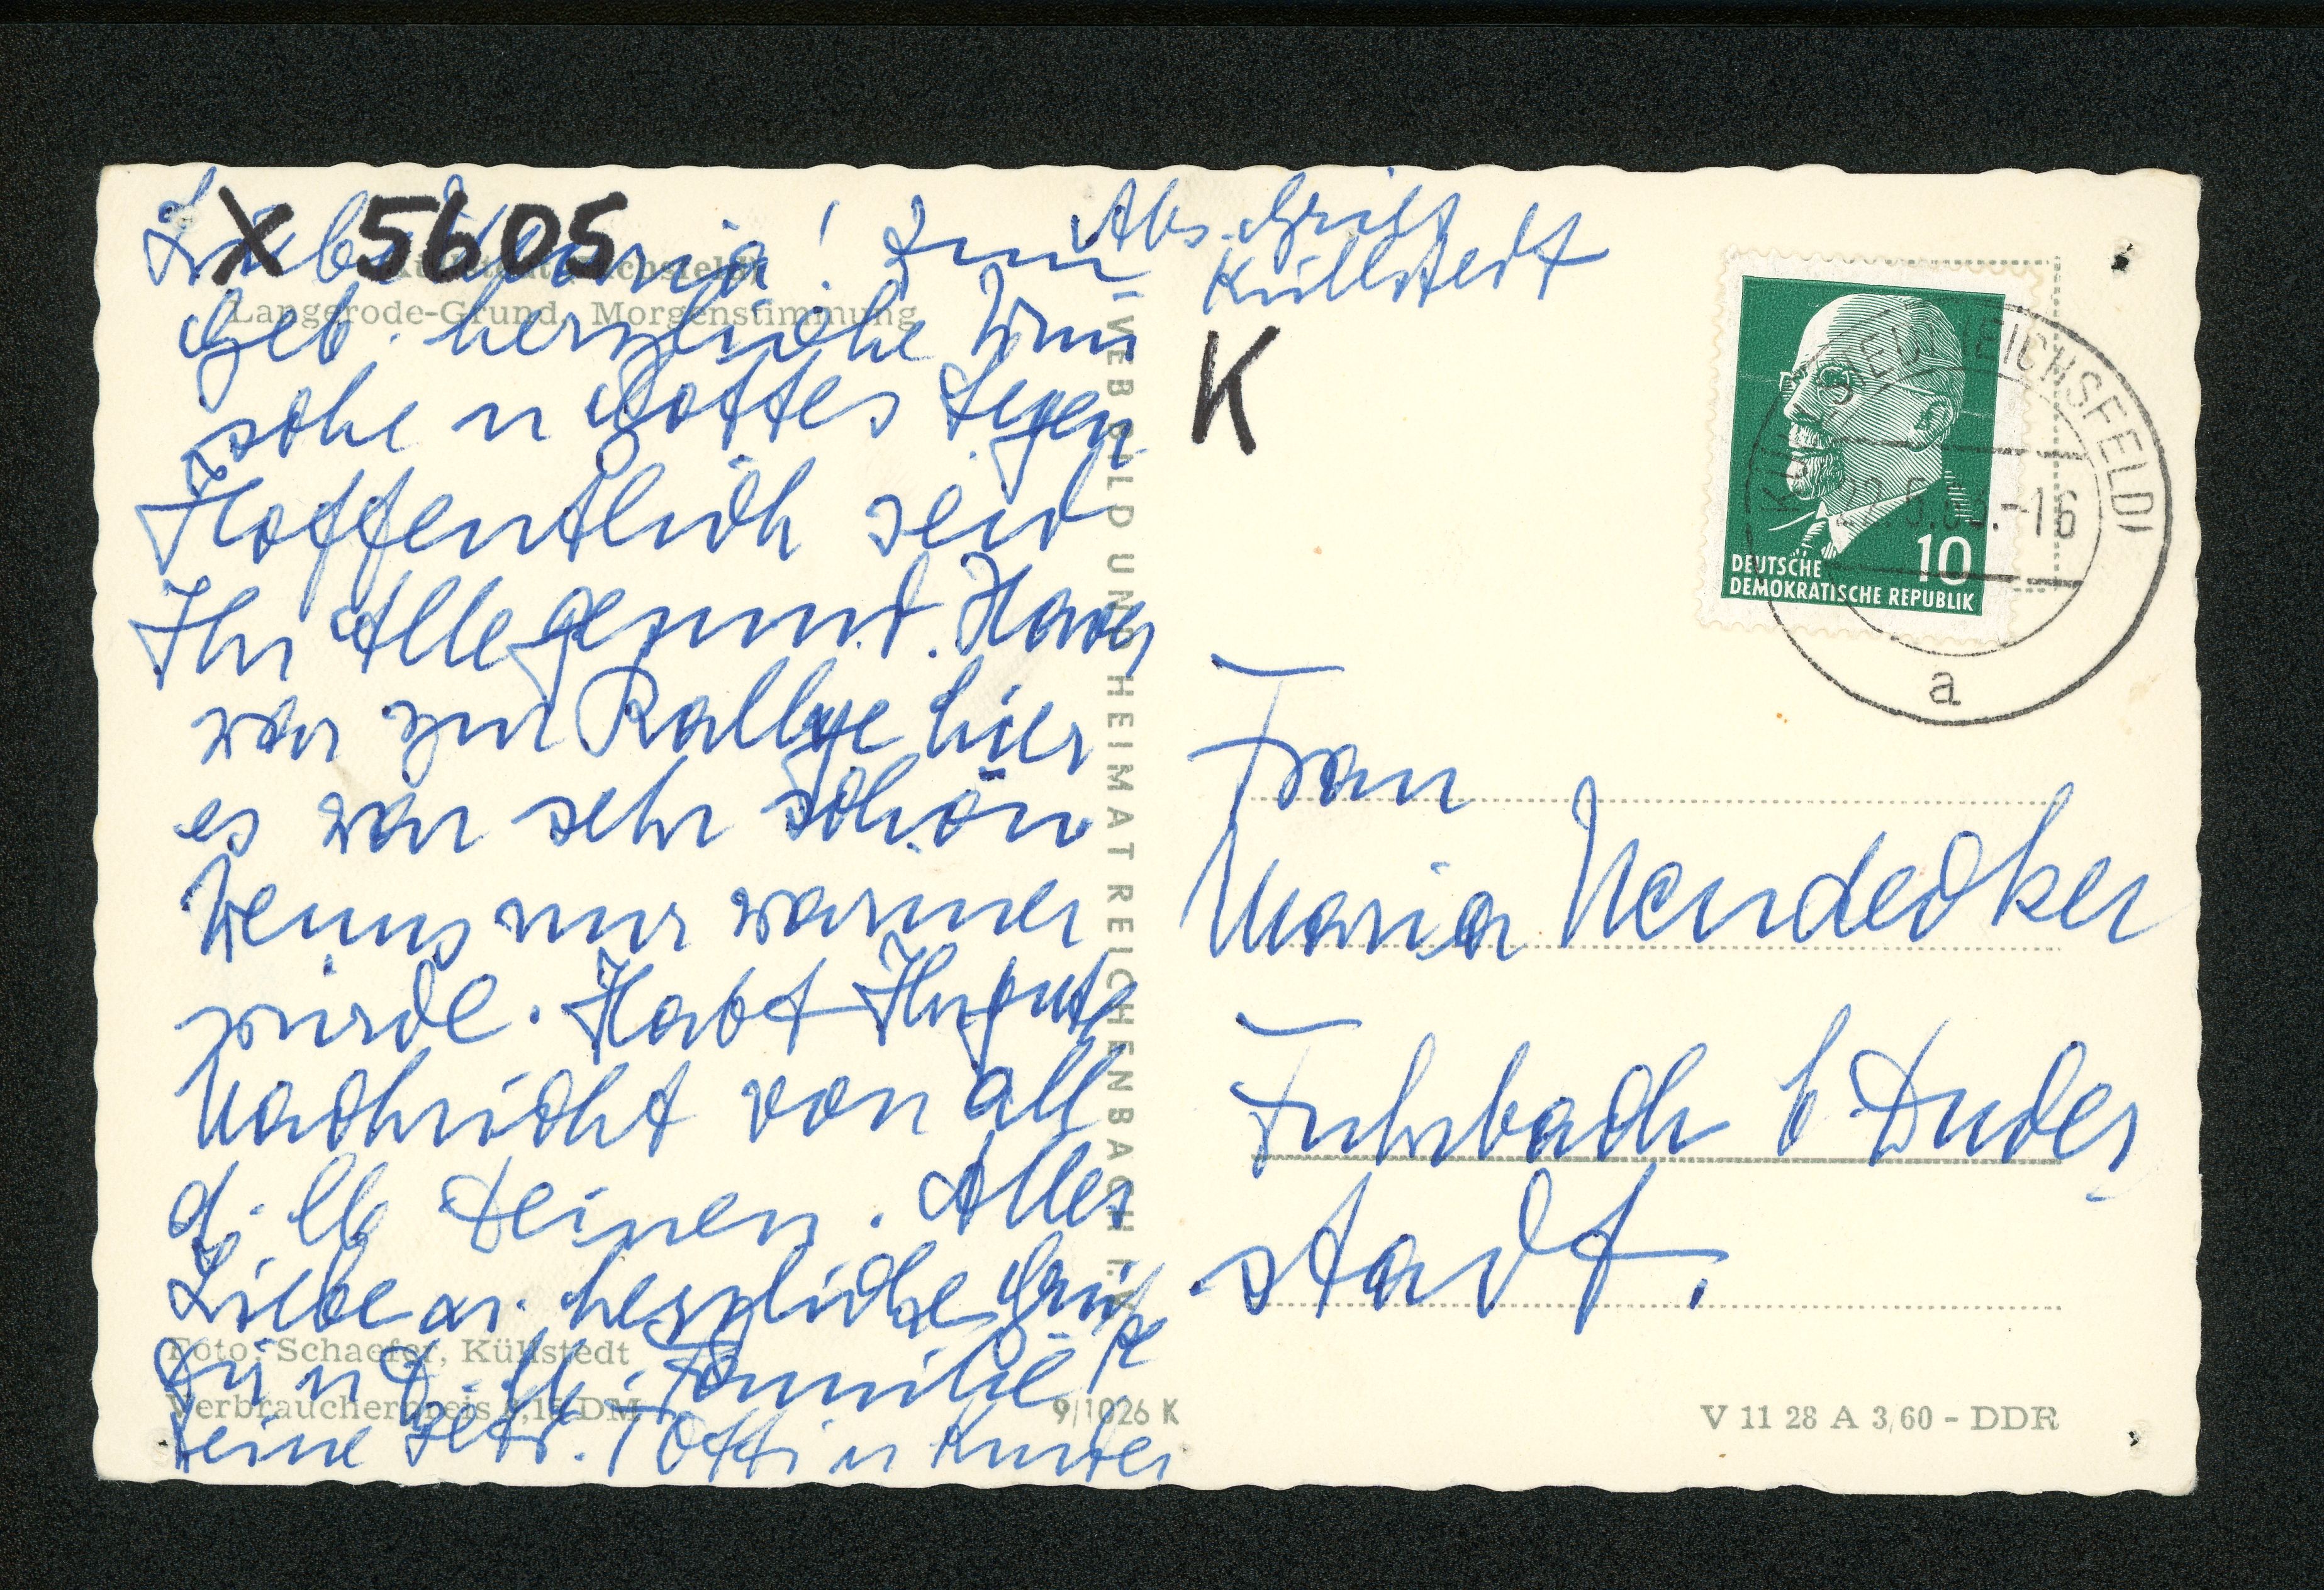 Liebe Maria! Zum
Geb. herzliche Wün
sche u Gottes Segen
Hoffentlich seid
Ihr Alle gesund.
war zur Rallye hier
es war sehr schön
Wenns nur warmer
würde. Habt Ihr gute
Nachricht von all
d. lb Deinen. Alles
Liebe u. herzliche Grüß
e
Familie
Deine Otti u Kinder
X 5605
Küllstedt (Eichsfeld)
Langerode-Grund, Morgenstimmung
Foto: Schaefer, Küllstedt
Verbraucherpreis 0,15 DM
VEB BILD UND HEIMAT REICHENBACH I. V.
9/1026 K
Abs.
Küllstedt
K
DEUTSCHE
DEMOKRATISCHE REPUBLIK
10
-16
a
Frau
Maria Nendecker
Fuhrbach b. Duder
stadt.
V 11 28 A 3/60 - DDR